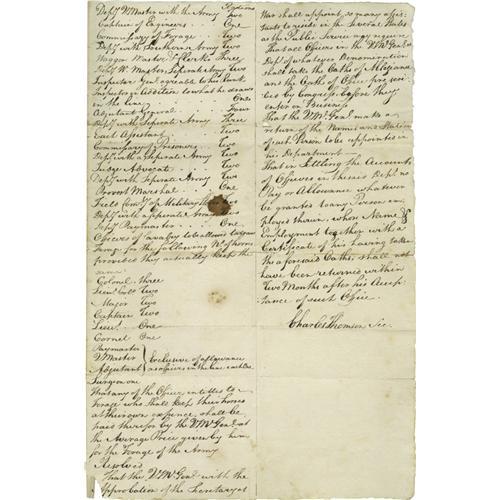 Depy. Qr. Master with the Army Rations two
Captain of Engineers Two
Commissary of Forage Two
Depy. with Southern Army Two
Waggon Master & Clerks Three
Depy. W. Master Separate Army Two
Inspector Genl. agreeable to his Rank
Inspectors in Addition to what he draws
in the line One
Adjutant General Four
Depy. with Seperate Army Three
Each Assistant Two
Commissary of Prisoners Two
Depy. with a Seperate Army Two
Judge Advocate Two
Depy. with Seperate Army Two
Provost Marshal One
Field Comy. of Military
Depy. with a seperate Army
Depy. Paymaster One
Officers of Cavalry to be allowed
Forage for the following No. of horses
provided they actually keep the
same
Colonel three
Lieut. Colo. Two
Major Two
Captain Two
Lieut. One
Cornet One
Paymaster
Qr. Master
Adjutant } Exclusive of allowance as officers in the line each One
Surgeon One
That any of the Officers entitled to
Forage who shall keep their horses
at their own expence, shall be
paid therefor by the Qr. Mr. Genl. at
the Average Price given by him
for the Forage of the Army
Resolved
That the Qr. Mr. Genl. with the
approbation of the Secretary at
War shall appoint, so many assis
tants to reside in the Several States
as the Public Service may require
That all Officers in the Qr. Mr. Genls.
Dept. of whatever Denomination
shall take the Oath of Allegiance
and the Oath of Office prescri
bed by Congress before they
enter on Business
That the Qr. Mr. Genl. make a
return of the Names and Station
of each Person to be appointed in
his Department
That in Settling the Accounts
of Officers in these Depts. no
Pay or Allowance whatever
be granted to any Person em
ployed therein, whose Name &
Employment together with a
Certificate of his having taken
the aforesaid Oaths, shall not
have been returned within
Two Months after his Accep
tance of such Office.
Charles Thomson Sec.